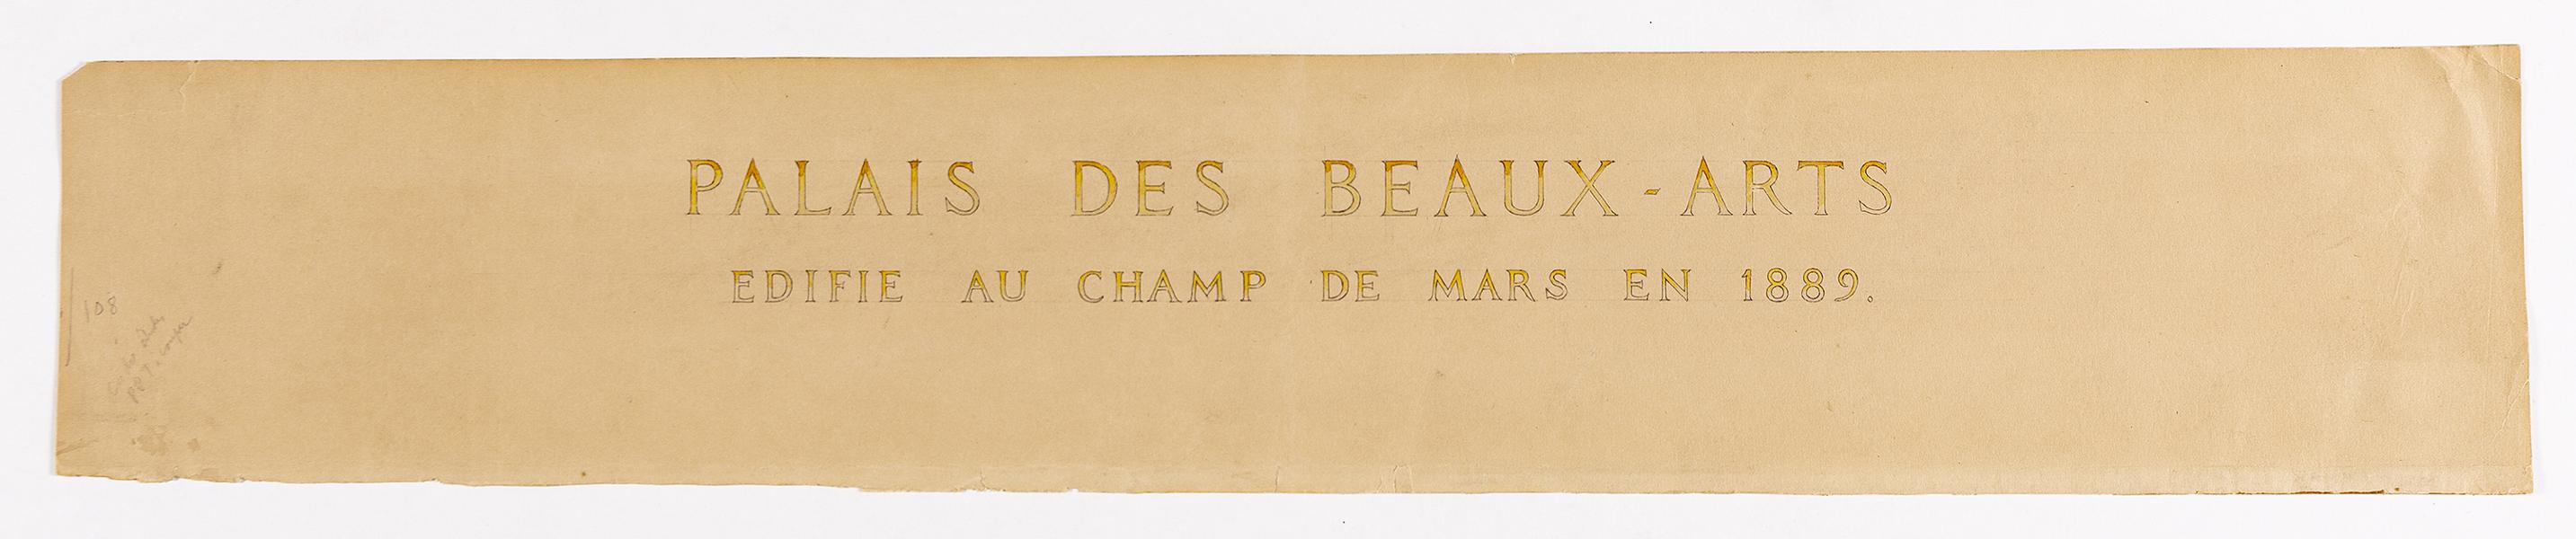 PALAIS DES BEAUX-ARTS
EDIFIE AU CHAMP DE MARS EN 1889.
108